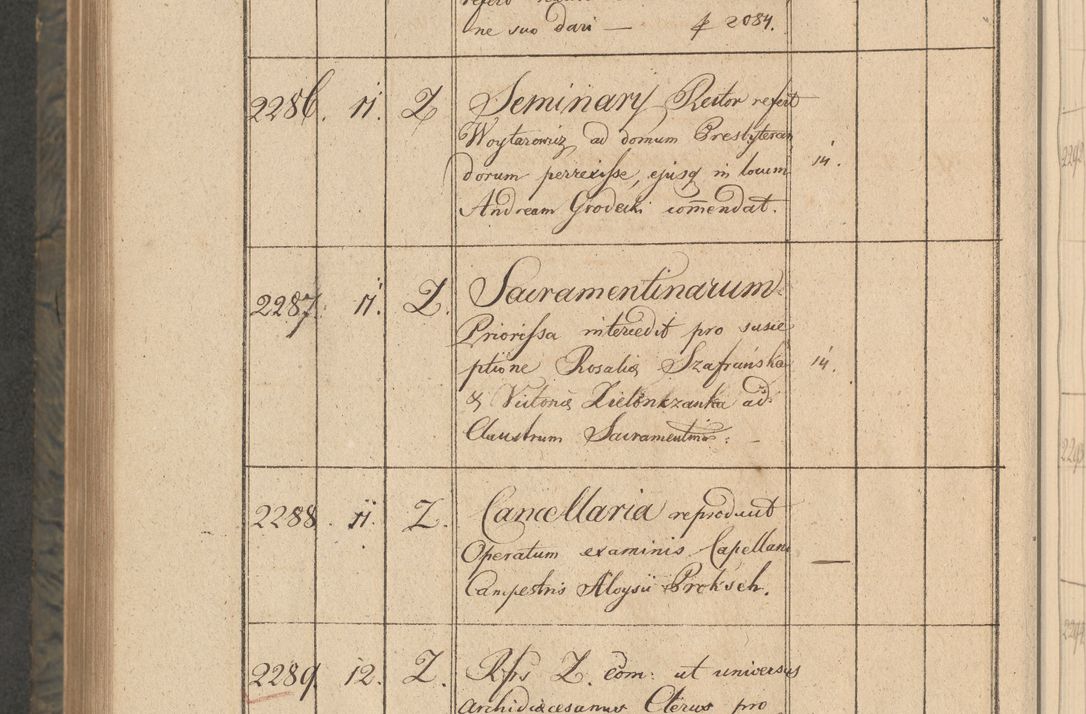 ne suo dari — 2084.
2286. 11. Z. Seminary Rector refert
Woytarowicz ad domum Presbytero
dorum perrexisse, ejusq in locum 14.
Andream Grodecki com̄endat.
2287. 11. Z. Sacramentinarum
Priorissa intercedit pro susce
ptione Rosaliæ Szafrańska 14.
& Victoriæ Zielonkzanka ad
Claustrum Sacramentina:
2288. 11. Z. Cancellaria reproducit
Operatum examinis Capellani —
Campestris Aloysii Proksch.
2289. 12. Z. Rfs Z. com: ut universus
Archidiœcesanus Clerus pro